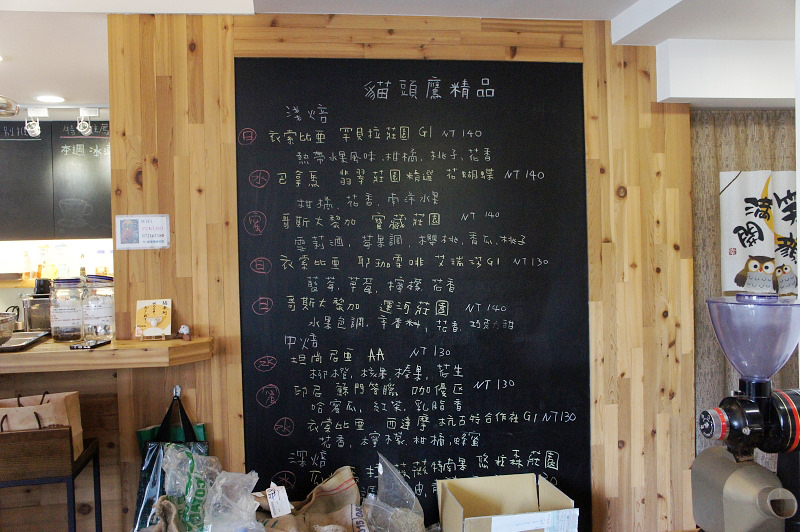 貓頭鷹精品
淺焙
日 衣索比亞 罕貝拉莊園 G1 NT 140
熱帶水果風味、柑橘、桃子、花香
水 巴拿馬 翡翠莊園精選 花蝴蝶 NT 140
柑橘、花香、南洋水果
蜜 哥斯大黎加 寶藏莊園 NT 140
雪莉酒、莓果調、櫻桃、香瓜、桃子
日 衣索比亞 耶珈雪啡 艾瑞莎 G1 NT 130
藍莓、草莓、檸檬、花香
日 哥斯大黎加 運河莊園 NT 140
水果包調、辛香料、花香、巧克力甜
中焙
水 坦尚尼亞 AA NT 130
柳橙、核果、榛果、花生
印尼 蘇門答臘 咖優區 NT 130
哈密瓜、紅茶、乳脂香
水 衣索比亞 西達摩 G1 NT 130
花香、檸檬、柑橘、蜂蜜
深焙
水 莊園
本週